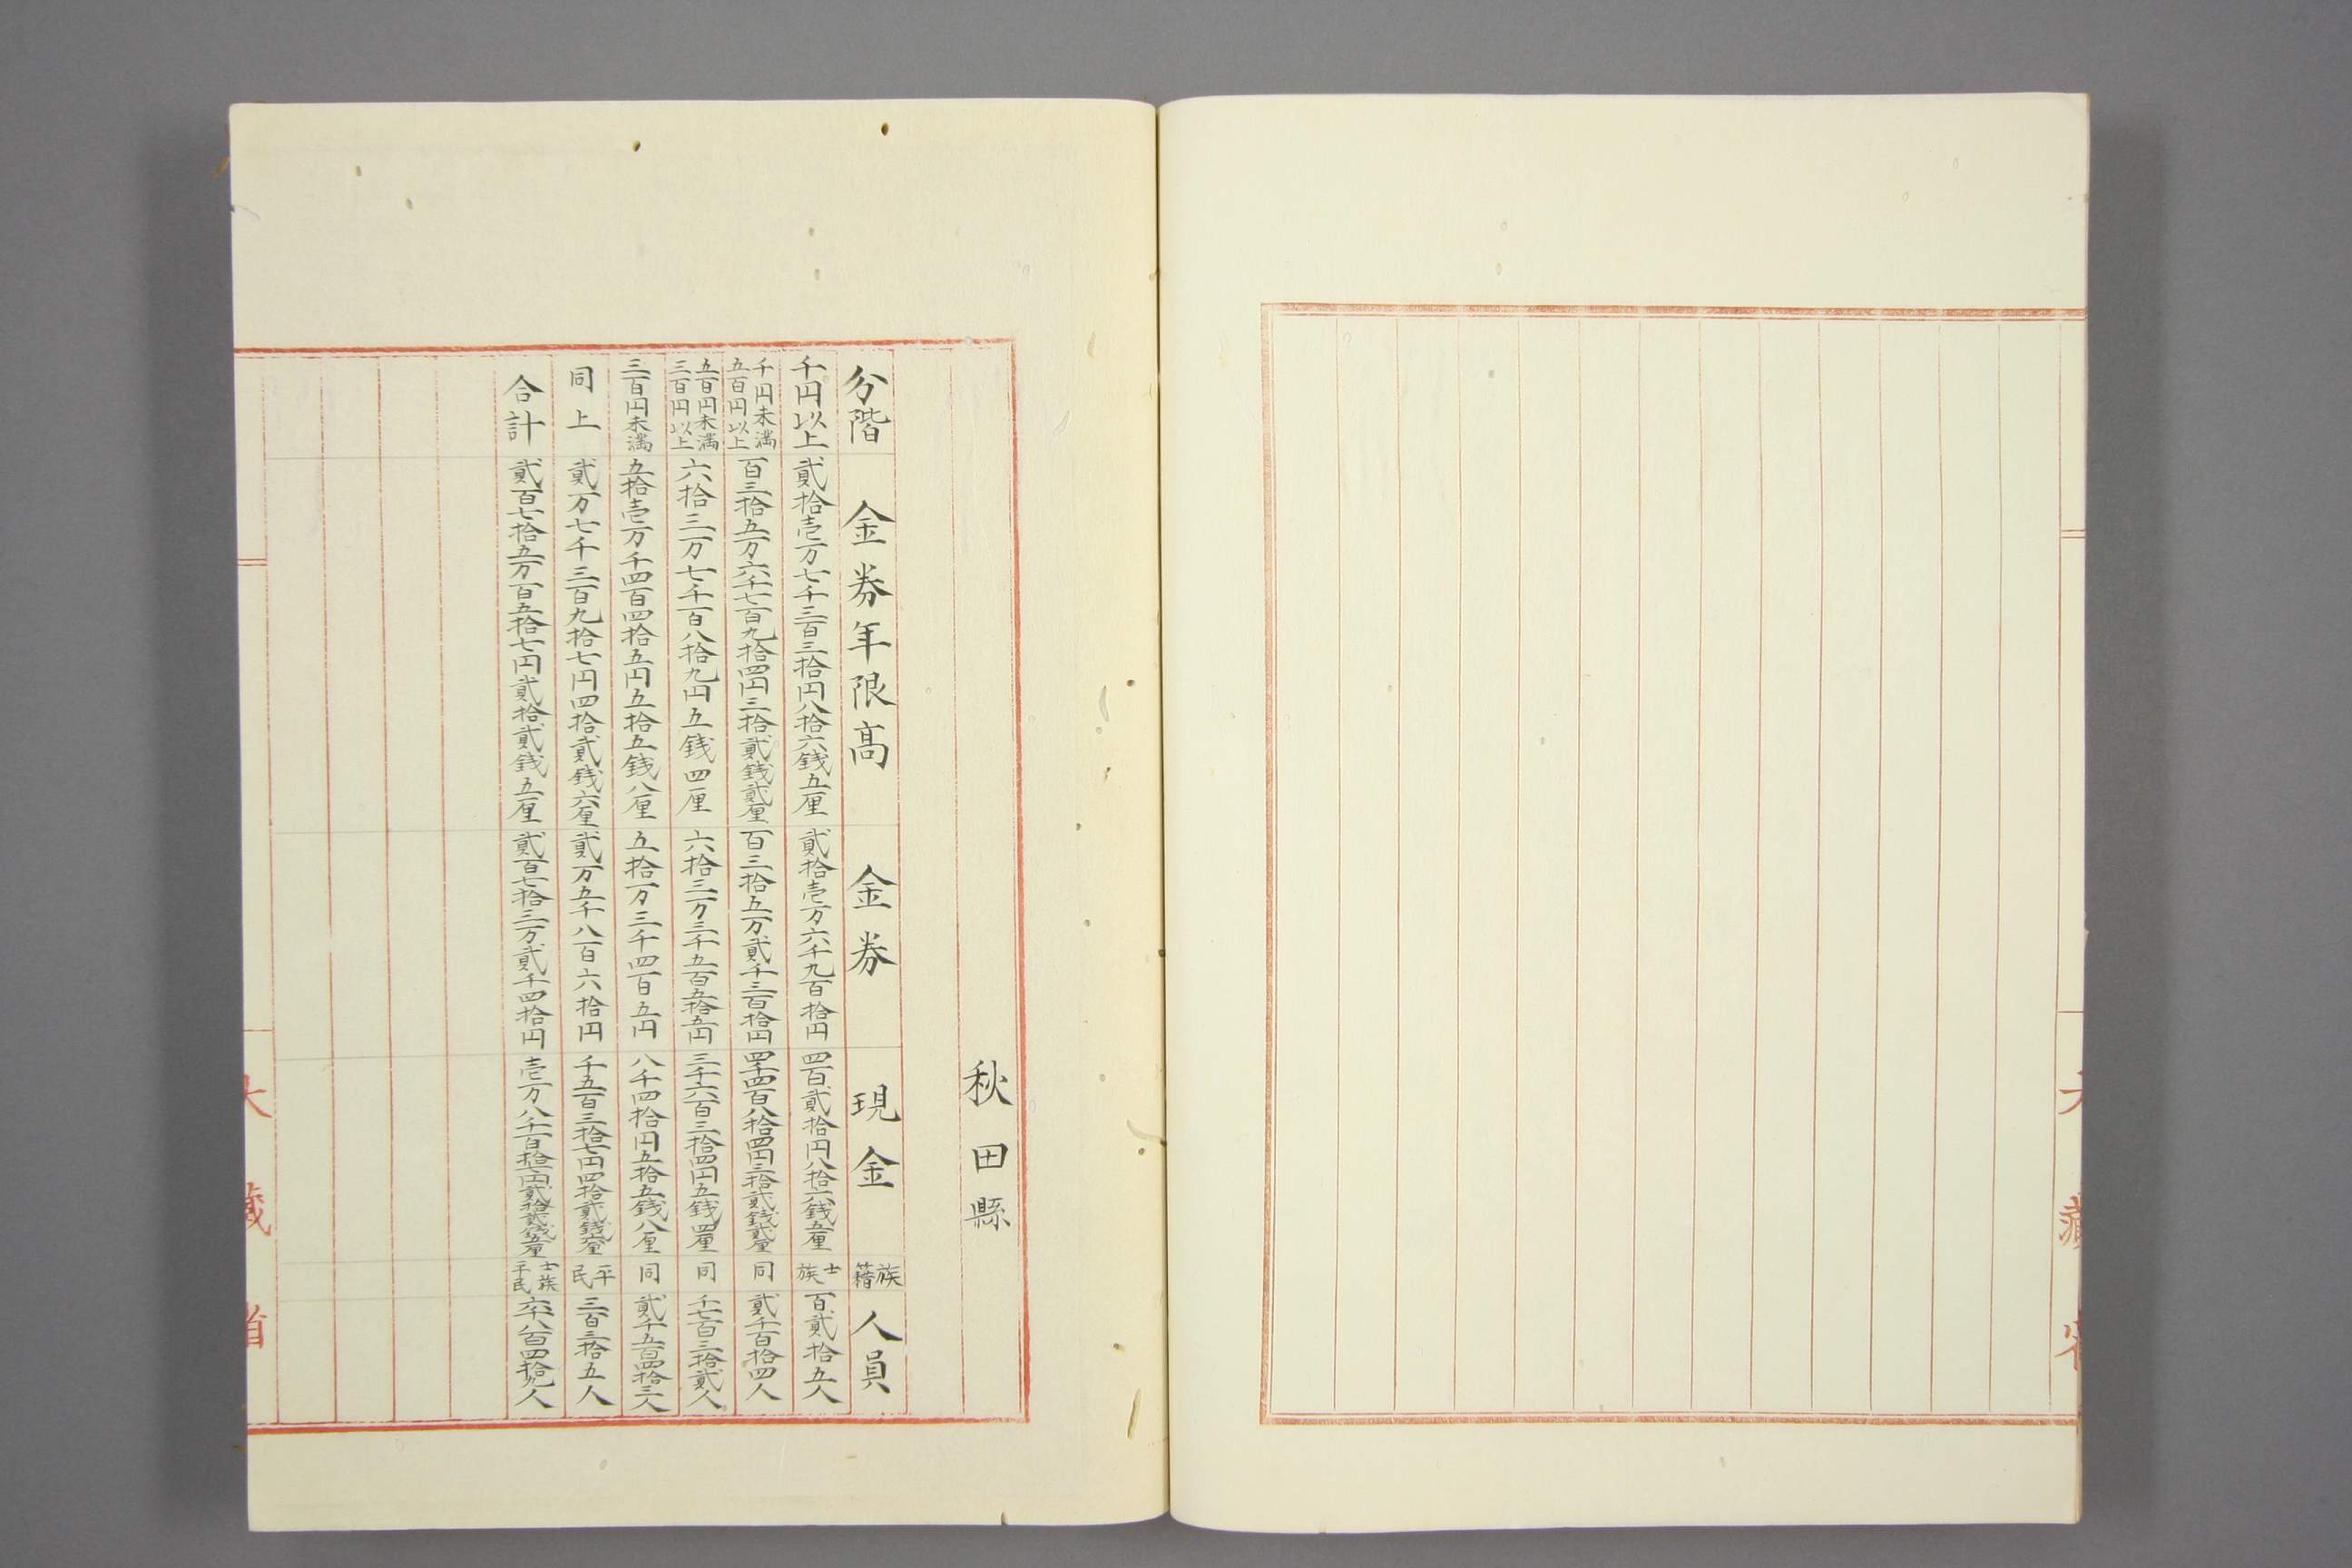 秋田縣
分階 金券年限高 金券 現金 族籍 人員
千円以上 貳拾壱万七千三百三拾円八拾六銭五厘 貳拾壱万六千九百拾円 四百貳拾円八拾六銭五厘 士族 百貳拾五人
千円未満五百円以上 百三拾五万六千七百九拾四円三拾貳銭貳厘 百三拾五万貳千三百拾円 四千四百八拾四円三拾貳銭貳厘 同 貳千百拾四人
五百円未満三百円以上 六拾三万七千百八拾九円五銭四厘 六拾三万三千五百五拾五円 三千六百三拾四円五銭四厘 同 千七百三拾貳人
三百円未満 五拾壱万千四百四拾五円五拾五銭八厘 五拾万三千四百五円 八千四拾円五拾五銭八厘 同 貳千五百四拾三人
同上 貳万七千三百九拾七円四拾貳銭六厘 貳万五千八百六拾円 千五百三拾七円四拾貳銭六厘 平民 三百三拾五人
合計 貳百七拾五万百五拾七円貳拾貳銭五厘 貳百七拾三万貳千四拾円 壱万八千百拾七円貳拾貳銭五厘 士族平民 六千八百四拾九人
大藏省